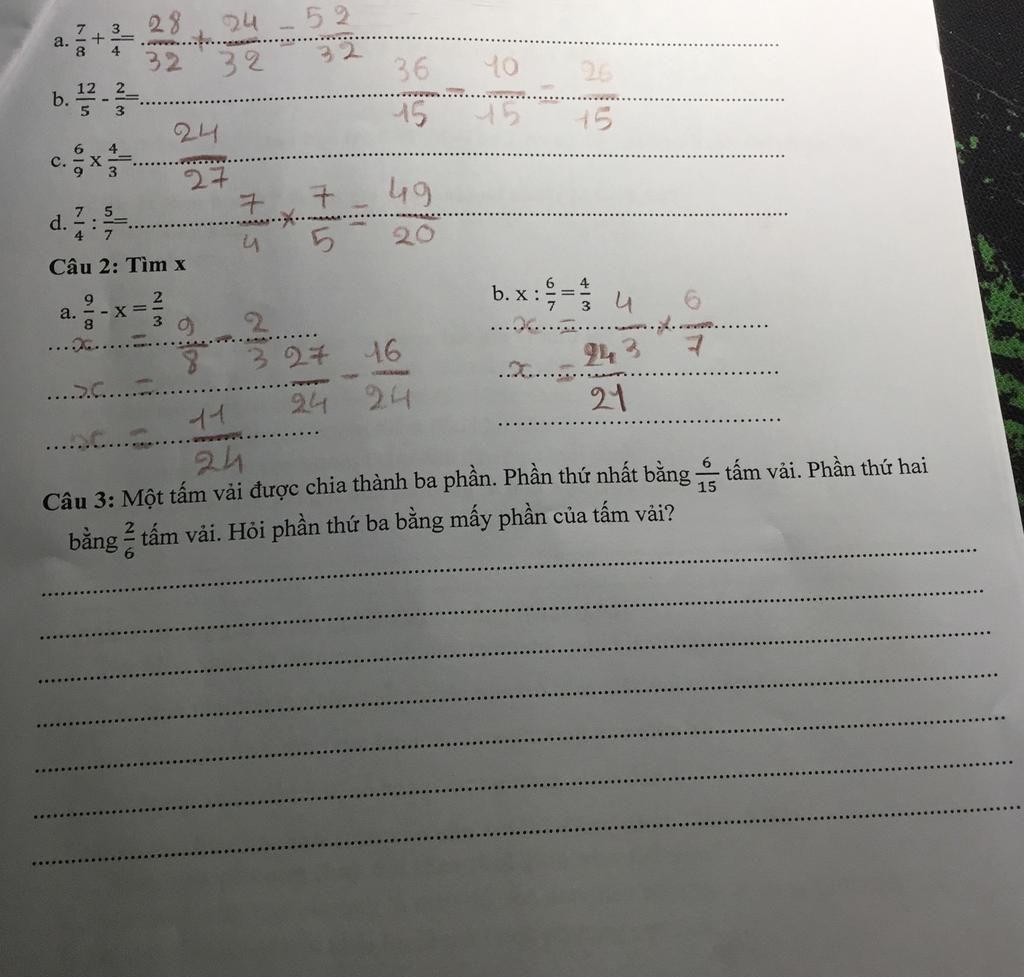 a. 7/8 + 3/4 = 28/32 + 24/32 = 52/32
b. 12/5 - 2/3 = 36/15 - 10/15 = 26/15
c. 6/9 x 4/3 = 24/27
d. 7/4 : 5/7 = 7/4 x 7/5 = 49/20
Câu 2: Tìm x
a. 9/8 - x = 2/3
x = 9/8 - 2/3
x = 27/24 - 16/24
x = 11/24
b. x : 6/7 = 4/3
x = 4/3 x 6/7
x = 24/21
Câu 3: Một tấm vải được chia thành ba phần. Phần thứ nhất bằng 6/15 tấm vải. Phần thứ hai
bằng 2/6 tấm vải. Hỏi phần thứ ba bằng mấy phần của tấm vải?